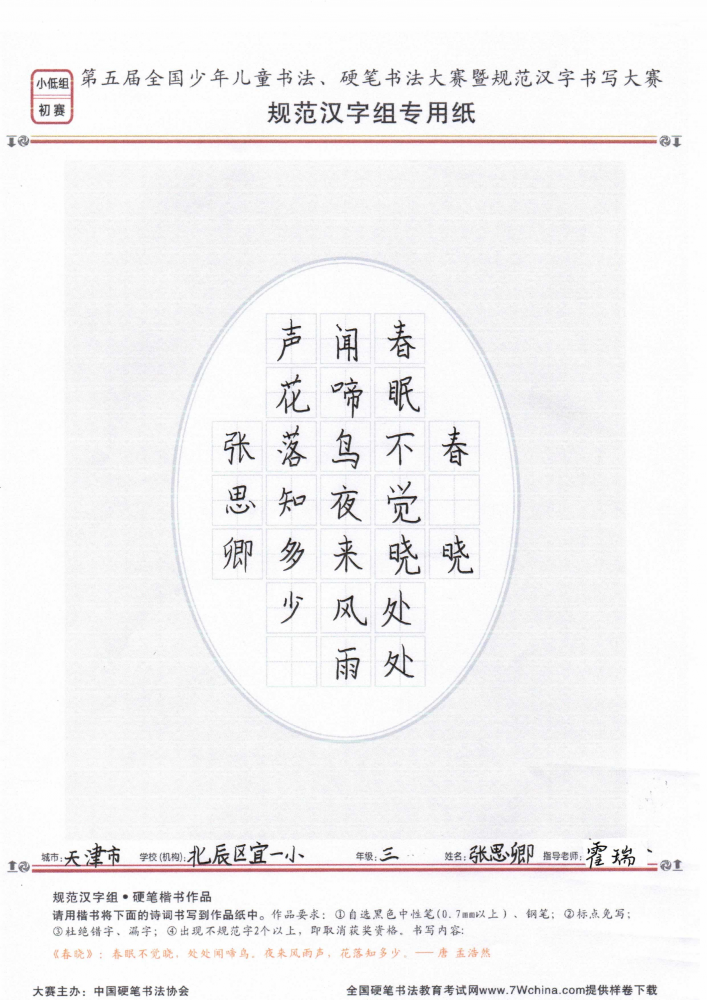 小低组
初赛
第五届全国少年儿童书法、硬笔书法大赛暨规范汉字书写大赛
规范汉字组专用纸
春晓
春眠不觉晓处处
闻啼鸟夜来风雨
声花落知多少
张思卿
城市:天津市 学校(机构):北辰区宜一小 年级:三 姓名:张思卿 指导老师:霍瑞
规范汉字组•硬笔楷书作品
请用楷书将下面的诗词书写到作品纸中。作品要求：①自选黑色中性笔(0.7mm以上)、钢笔；②标点免写；
③杜绝错字、漏字；④出现不规范字2个以上，即取消获奖资格。书写内容：
《春晓》：春眠不觉晓，处处闻啼鸟。夜来风雨声，花落知多少。——唐 孟浩然
大赛主办：中国硬笔书法协会 全国硬笔书法教育考试网www.7Wchina.com提供样卷下载